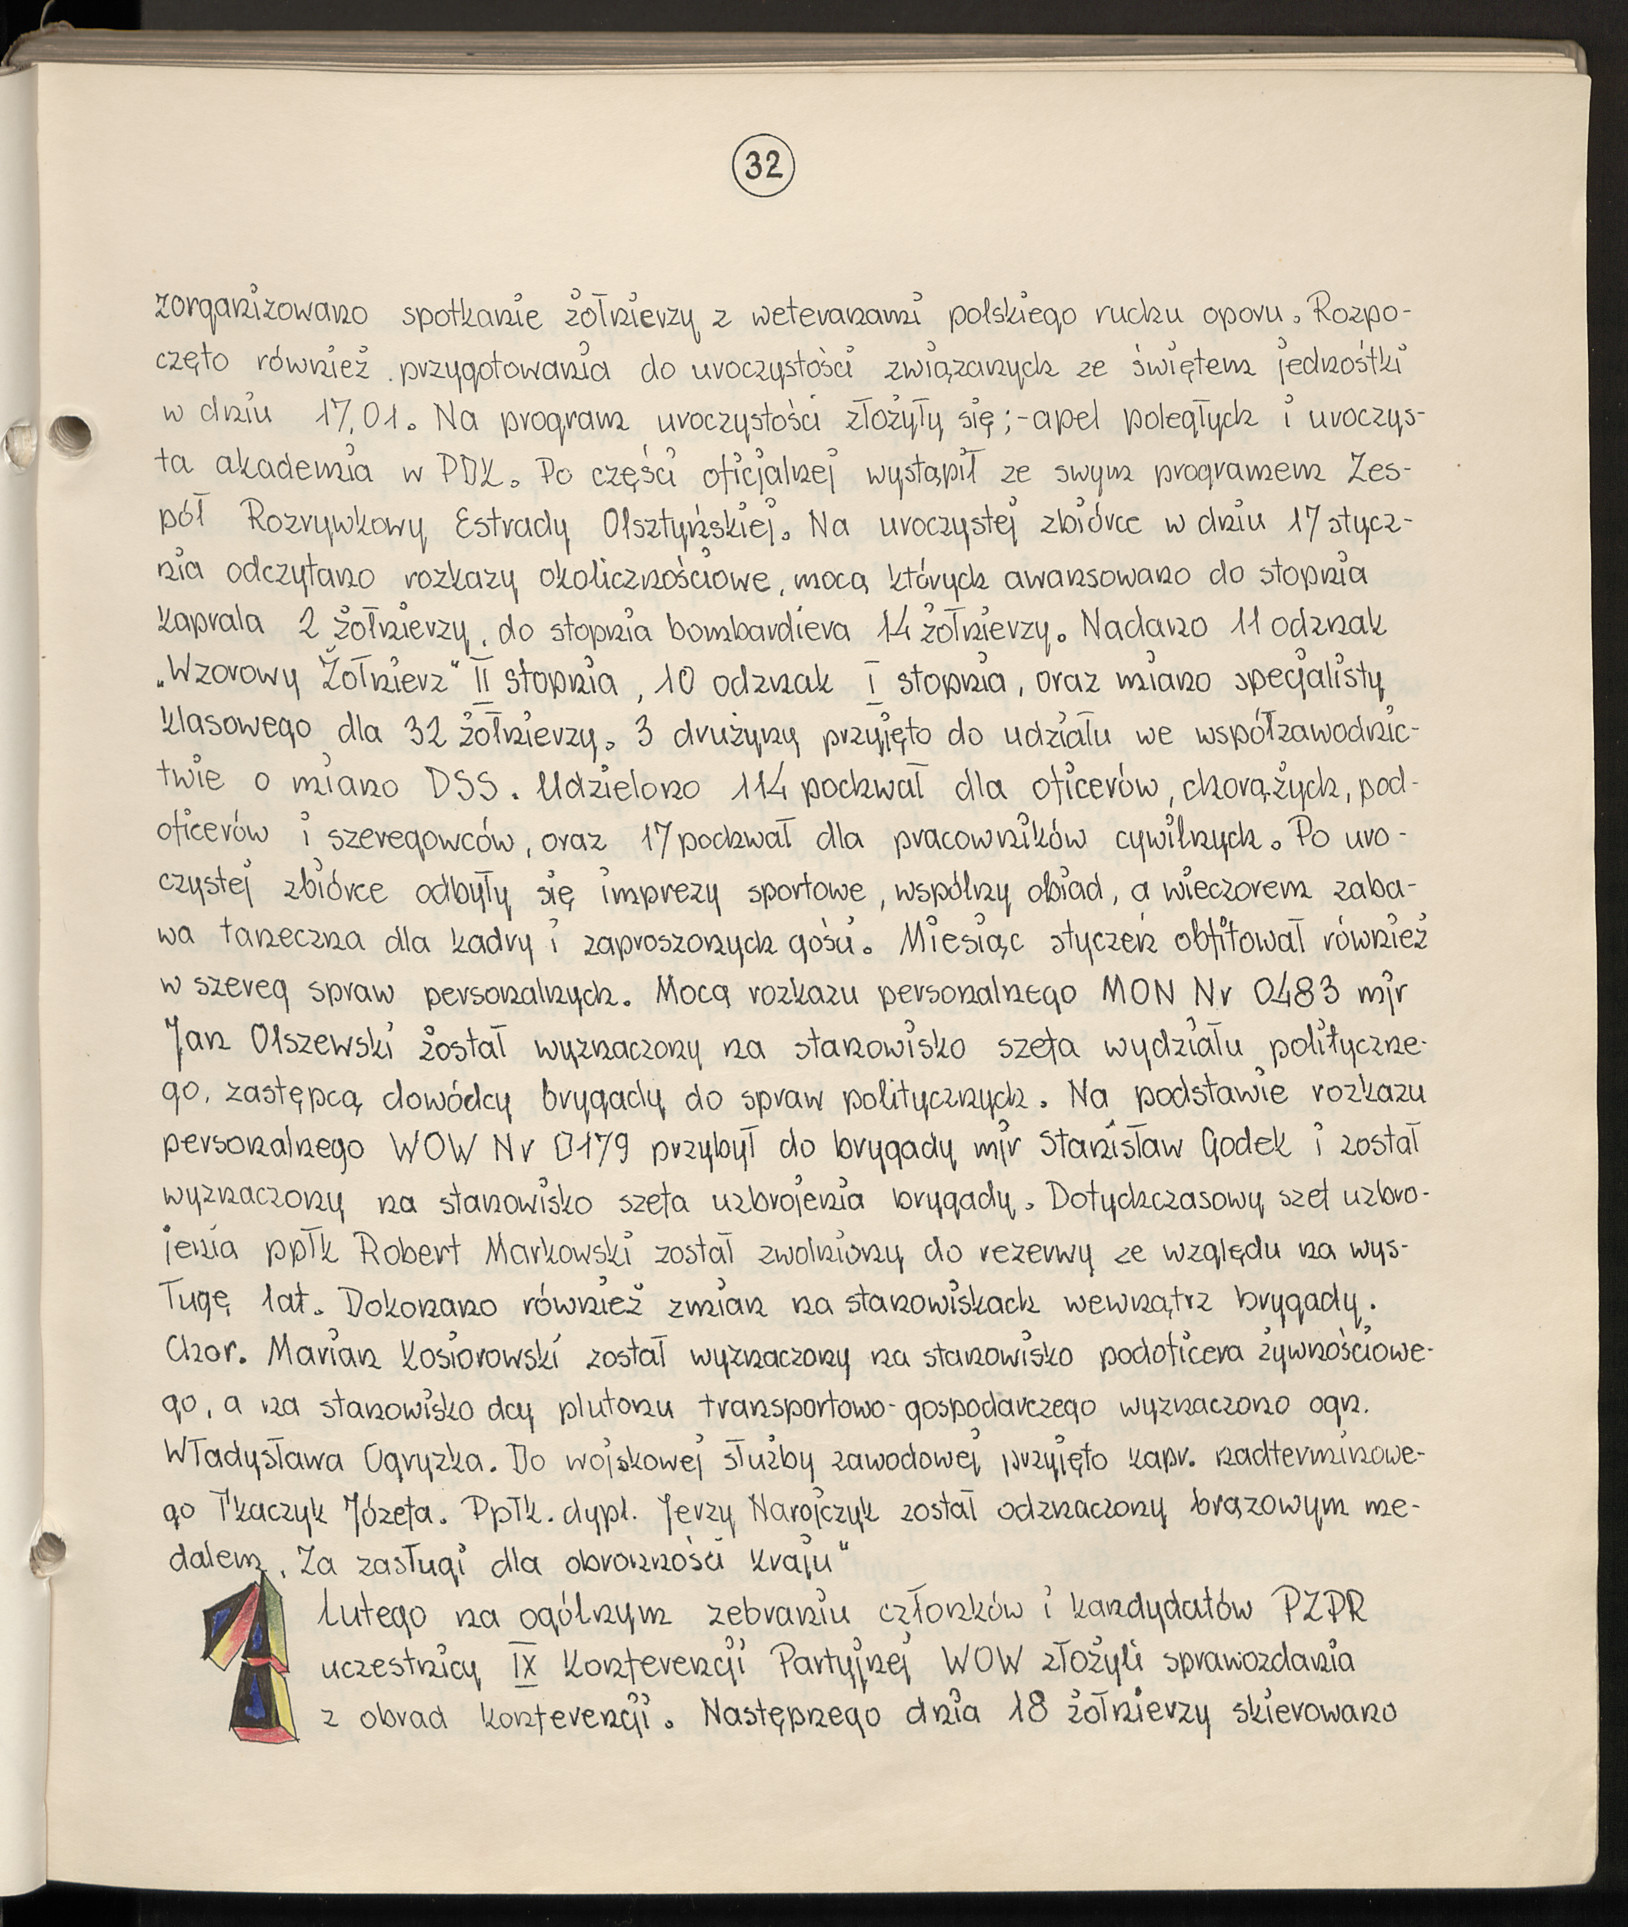 32
zorganizowano spotkanie żołnierzy z weteranami polskiego ruchu oporu. Rozpo-
częto również przygotowania do uroczystości związanych ze świętem jednostki
w dniu 17.01. Na program uroczystości złożyły się;-apel poległych i uroczys-
ta akademia w PDK. Po części oficjalnej wystąpił ze swym programem Zes-
pół Rozrywkowy Estrady Olsztyńskiej. Na uroczystej zbiórce w dniu 17 stycz-
nia odczytano rozkazy okolicznościowe, mocą których awansowano do stopnia
kaprala 2 żołnierzy, do stopnia bombardiera 14 żołnierzy. Nadano 11 odznak
„Wzorowy Żołnierz" II stopnia, 10 odznak I stopnia, oraz miano specjalisty
klasowego dla 32 żołnierzy. 3 drużyny przyjęto do udziału we współzawodnic-
twie o miano DSS. Udzielono 114 pochwał dla oficerów, chorążych, pod-
oficerów i szeregowców, oraz 17 pochwał dla pracowników cywilnych. Po uro-
czystej zbiórce odbyły się imprezy sportowe, wspólny obiad, a wieczorem zaba-
wa taneczna dla kadry i zaproszonych gości. Miesiąc styczeń obfitował również
w szereg spraw personalnych. Mocą rozkazu personalnego MON Nr 0483 mjr
Jan Olszewski został wyznaczony na stanowisko szefa wydziału polityczne-
go, zastępcą dowódcy brygady do spraw politycznych. Na podstawie rozkazu
personalnego WOW Nr 0179 przybył do brygady mjr Stanisław Godek i został
wyznaczony na stanowisko szefa uzbrojenia brygady. Dotychczasowy szef uzbro-
jenia ppłk Robert Markowski został zwolniony do rezerwy ze względu na wys-
ługę lat. Dokonano również zmian na stanowiskach wewnątrz brygady.
Chor. Marian Kosiorowski został wyznaczony na stanowisko podoficera żywnościowe-
go, a na stanowisko dcy plutonu transportowo-gospodarczego wyznaczono ogn.
Władysława Ogryzka. Do wojskowej służby zawodowej przyjęto kapr. nadterminowe-
go Tkaczyk Józefa. Ppłk. dypl. Jerzy Narojczyk został odznaczony brązowym me-
dalem „Za zasługi dla obronności kraju"
1 lutego na ogólnym zebraniu członków i kandydatów PZPR
uczestnicy IX Konferencji Partyjnej WOW złożyli sprawozdania
z obrad konferencji. Następnego dnia 18 żołnierzy skierowano